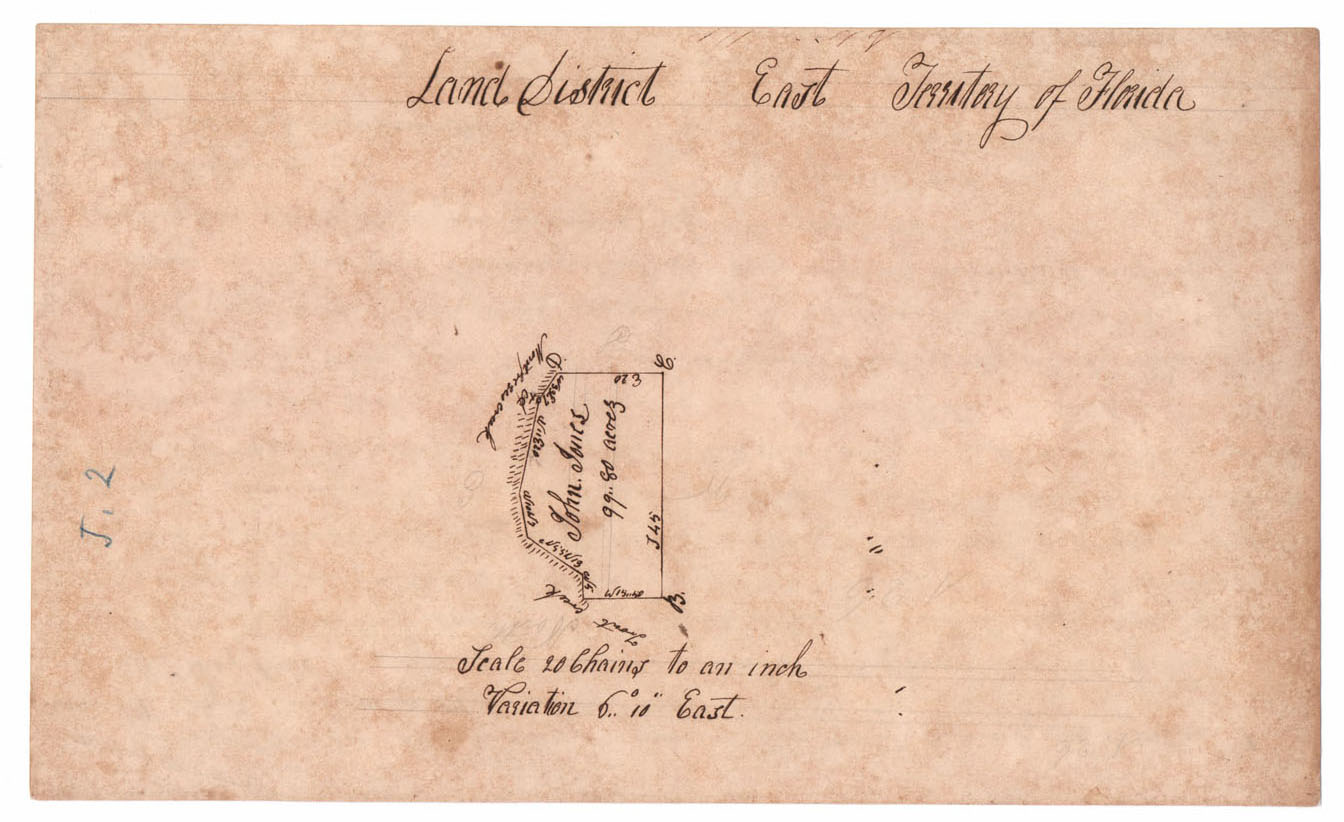 Land District East Territory of Florida
creek
D
C.
E 20
John. Jones
99..80 acres
S 45
B.
creek
Trout
Scale 20 Chains to an inch
Variation 6°.. 10" East.
J. 2